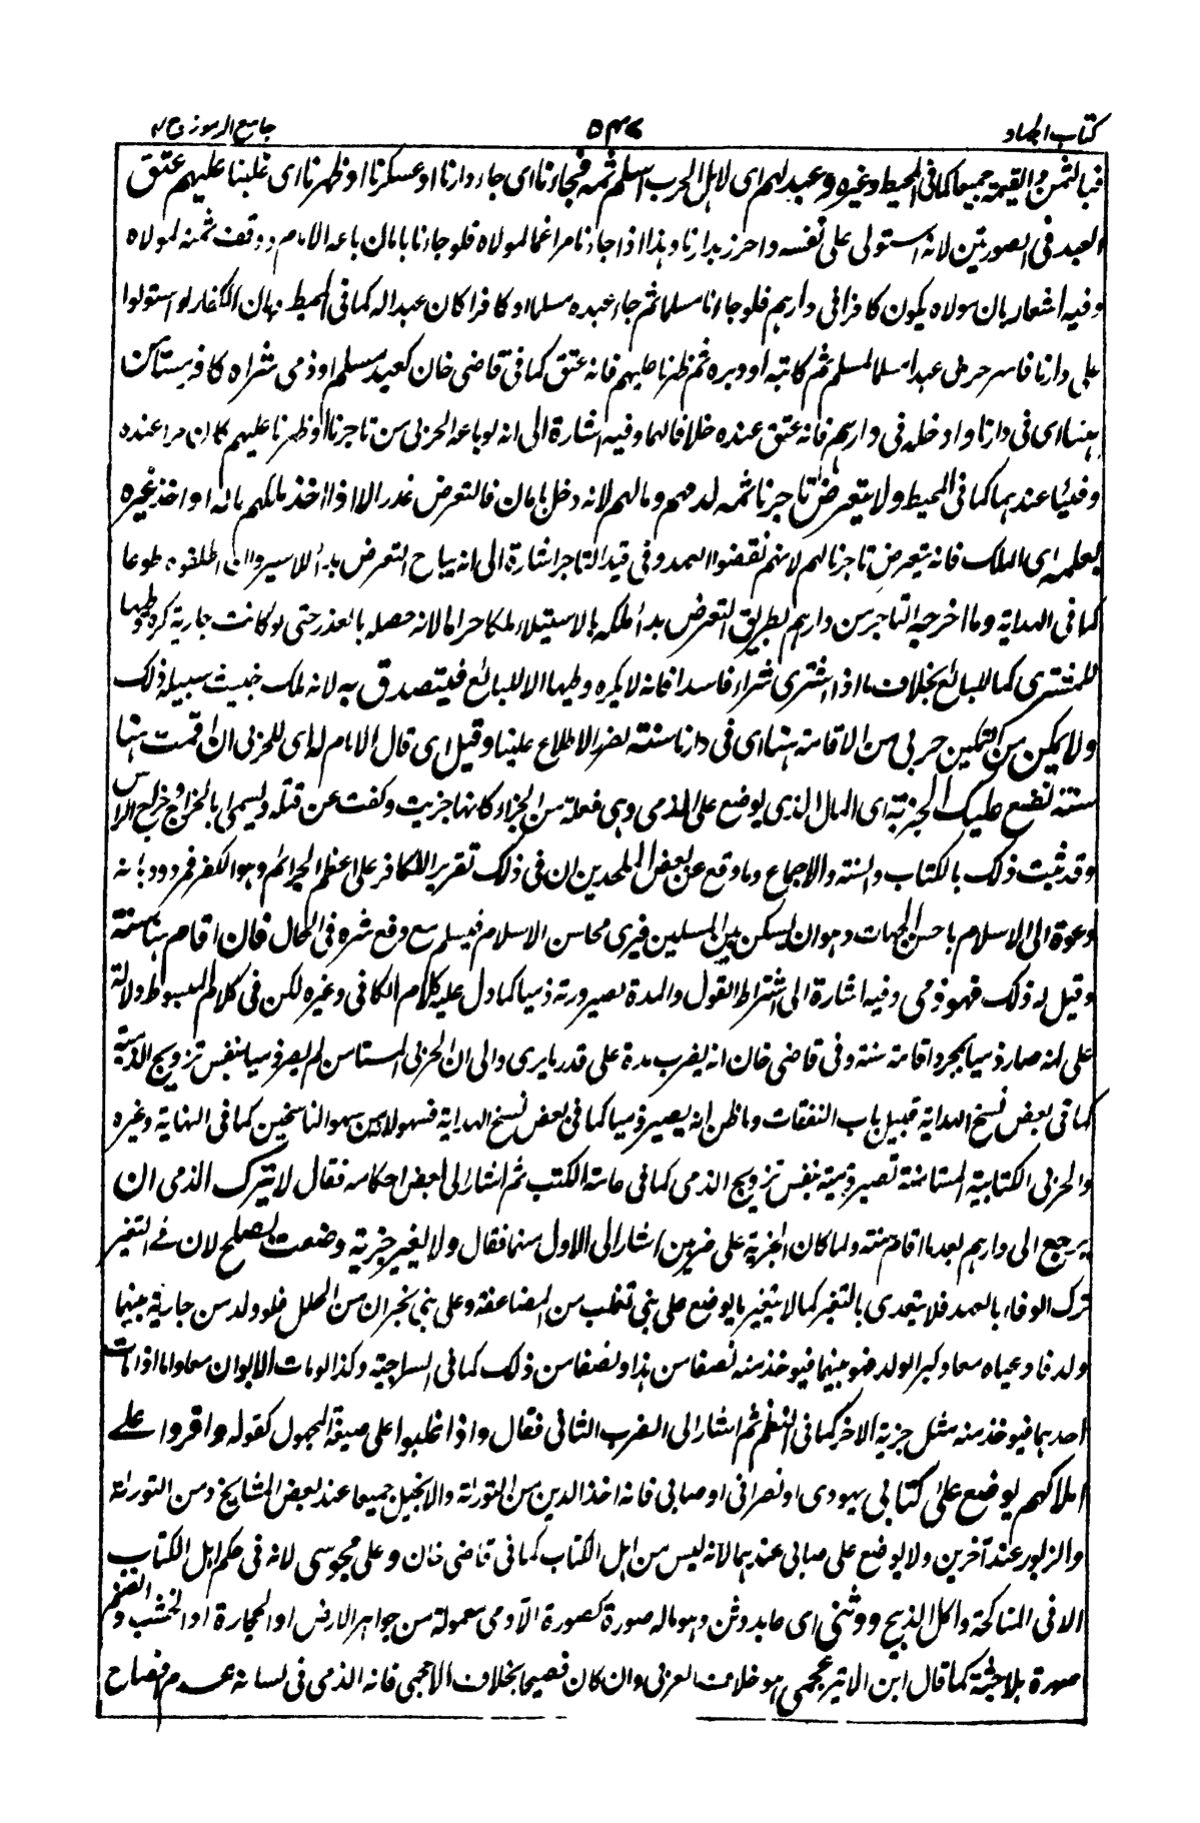 كتاب الجهاد
٥٤٧
جامع الرموز ج ٢
فبالثمن والقيمة جميعا كما فى المحيط وغيره وعبد لهم اى لاهل الحرب اسلم ثمه فجاءنا اى جاء دارنا او عسكرنا او ظهرنا اى غلبنا عليهم عتق
العبد فى الصورتين لانه استولى على نفسه واحرز بدارنا وهذا اذا جاءنا مراغما لمولاه فلو جاءنا بامان باعه الامام ووقف ثمنه لمولاه
وفيه اشعار بان مولاه يكون كافرا فى دارهم فلو جاءنا مسلما ثم جاء عبده مسلما او كافرا كان عبدا له كما فى المحيط فان الكفار لو استولوا
على دارنا فاسر حربى عبدا مسلما لمسلم ثم كاتبه او دبره ثم ظهرنا عليهم فانه عتق كما فى قاضى خان كعبد مسلم او ذمى شراه كافر مستأمن
ههنا اى فى دارنا وادخله فى دارهم فانه عتق عنده خلافا لهما وفيه اشارة الى انه لو باعه الحربى من تاجرنا او ظهرنا عليهم كان حرا عنده
وفيئا عندهما كما فى المحيط ولا يتعرض تاجرنا ثمه لدمهم ومالهم لانه دخل بامان فالتعرض غدر الا اذا اخذ ملكهم ماله او اخذ غيره
بعلمه اى الملك فانه يتعرض تاجرنا لهم لانهم نقضوا العهد وفى قيد التاجر اشارة الى انه يباح التعرض بدأ للاسير وان اطلقوه طوعا
كما فى الهداية وما اخرجه التاجر من دارهم بطريق التعرض بدأ ملكه بالاستيلاء ملكا حراما لانه حصله بالغدر حتى لو كانت جارية كره وطيها
للمشترى كما للبائع بخلاف ما اذا اشترى شراء فاسدا فانه لا يكره وطيها الا للبائع فيتصدق به لانه ملك خبيث سبيله ذلك
ولا يمكن من التمكين حربى من الاقامة ههنا اى فى دارنا سنة لضرر الاطلاع علينا وقيل اى قال الامام له اى للحربى ان اقمت ههنا
سنة نضع عليك الجزية اى المال الذى يوضع على الذمى وهى فعلة من الجزاء كانها جزيت وكفت عن قتله ويسمى بالخراج وخراج الراس
وقد ثبت ذلك بالكتاب والسنة والاجماع وما وقع عن بعض الملحدين ان فى ذلك تقرير الكافر على اعظم الجرائم وهو الكفر فمردود بانه
دعوة الى الاسلام باحسن الجهات وهو ان يسكن بين المسلمين فيرى محاسن الاسلام فيسلم مع دفع شره فى الحال فان اقام هنا سنة
وقيل له ذلك فهو ذمى وفيه اشارة الى اشتراط القول والمدة لصيرورته ذميا كما دل عليه كلام الكافى وغيره لكن فى كلام المبسوط دلالة
على انه صار ذميا بمجرد اقامة سنة وفى قاضى خان انه يضرب مدة على قدر ما يرى والى ان الحربى المستامن لم يصر ذميا بنفس تزويج الذمية
كما فى بعض نسخ الهداية قبيل باب النفقات وما ظن انه يصير ذميا كما فى بعض نسخ الهداية فسهو لا من سهو الناسخين كما فى النهاية وغيره
والحربى الكتابية المستامنة تصير ذمية بنفس تزويج الذمى كما فى عامة الكتب ثم اشار الى بعض احكامه فقال لا يترك الذمى ان
يرجع الى دارهم بعد ما اقام سنة ولما كان الجزية على ضربين اشار الى الاول منهما فقال ولا يغير جزية وضعت بصلح لان فى التغير
ترك الوفاء بالعهد فلا يتعدى بالتغير كما لا يتغير ما يوضع على بنى تغلب من المضاعفة وعلى بنى نجران من الحلل فلو ولد من جارية بينهما
ولد فادعياه معا وكبر الولد فهو بينهما فيؤخذ منه نصفا من هذا ونصفا من ذلك كما فى السراجية وكذا لو مات الابوان معا واما اذا مات
احدهما فيؤخذ منه مثل جزية الآخر كما فى النظم ثم اشار الى الضرب الثانى فقال واذا غلبوا على صيغة المجهول كقوله واقروا على
املاكهم يوضع على كتابى يهودى او نصرانى او صابى فانه اخذ الدين من التوراة والانجيل جميعا عند بعض المشايخ ومن التوراة
والزبور عند آخرين ولا يوضع على صابى عندهما لانه ليس من اهل الكتاب كما فى قاضى خان وعلى مجوسى لانه فى حكم اهل الكتاب
الا فى المناكحة واكل الذبيح ووثنى اى عابد وثن وهو ماله صورة كصورة الآدمى معمولة من جواهر الارض او الحجارة او الخشب والصنم
صورة بلا جثة كما قال ابن الاثير عجمى هو خلاف العربى وان كان فصيحا بخلاف الاعجمى فانه الذى فى لسانه عدم افصاح